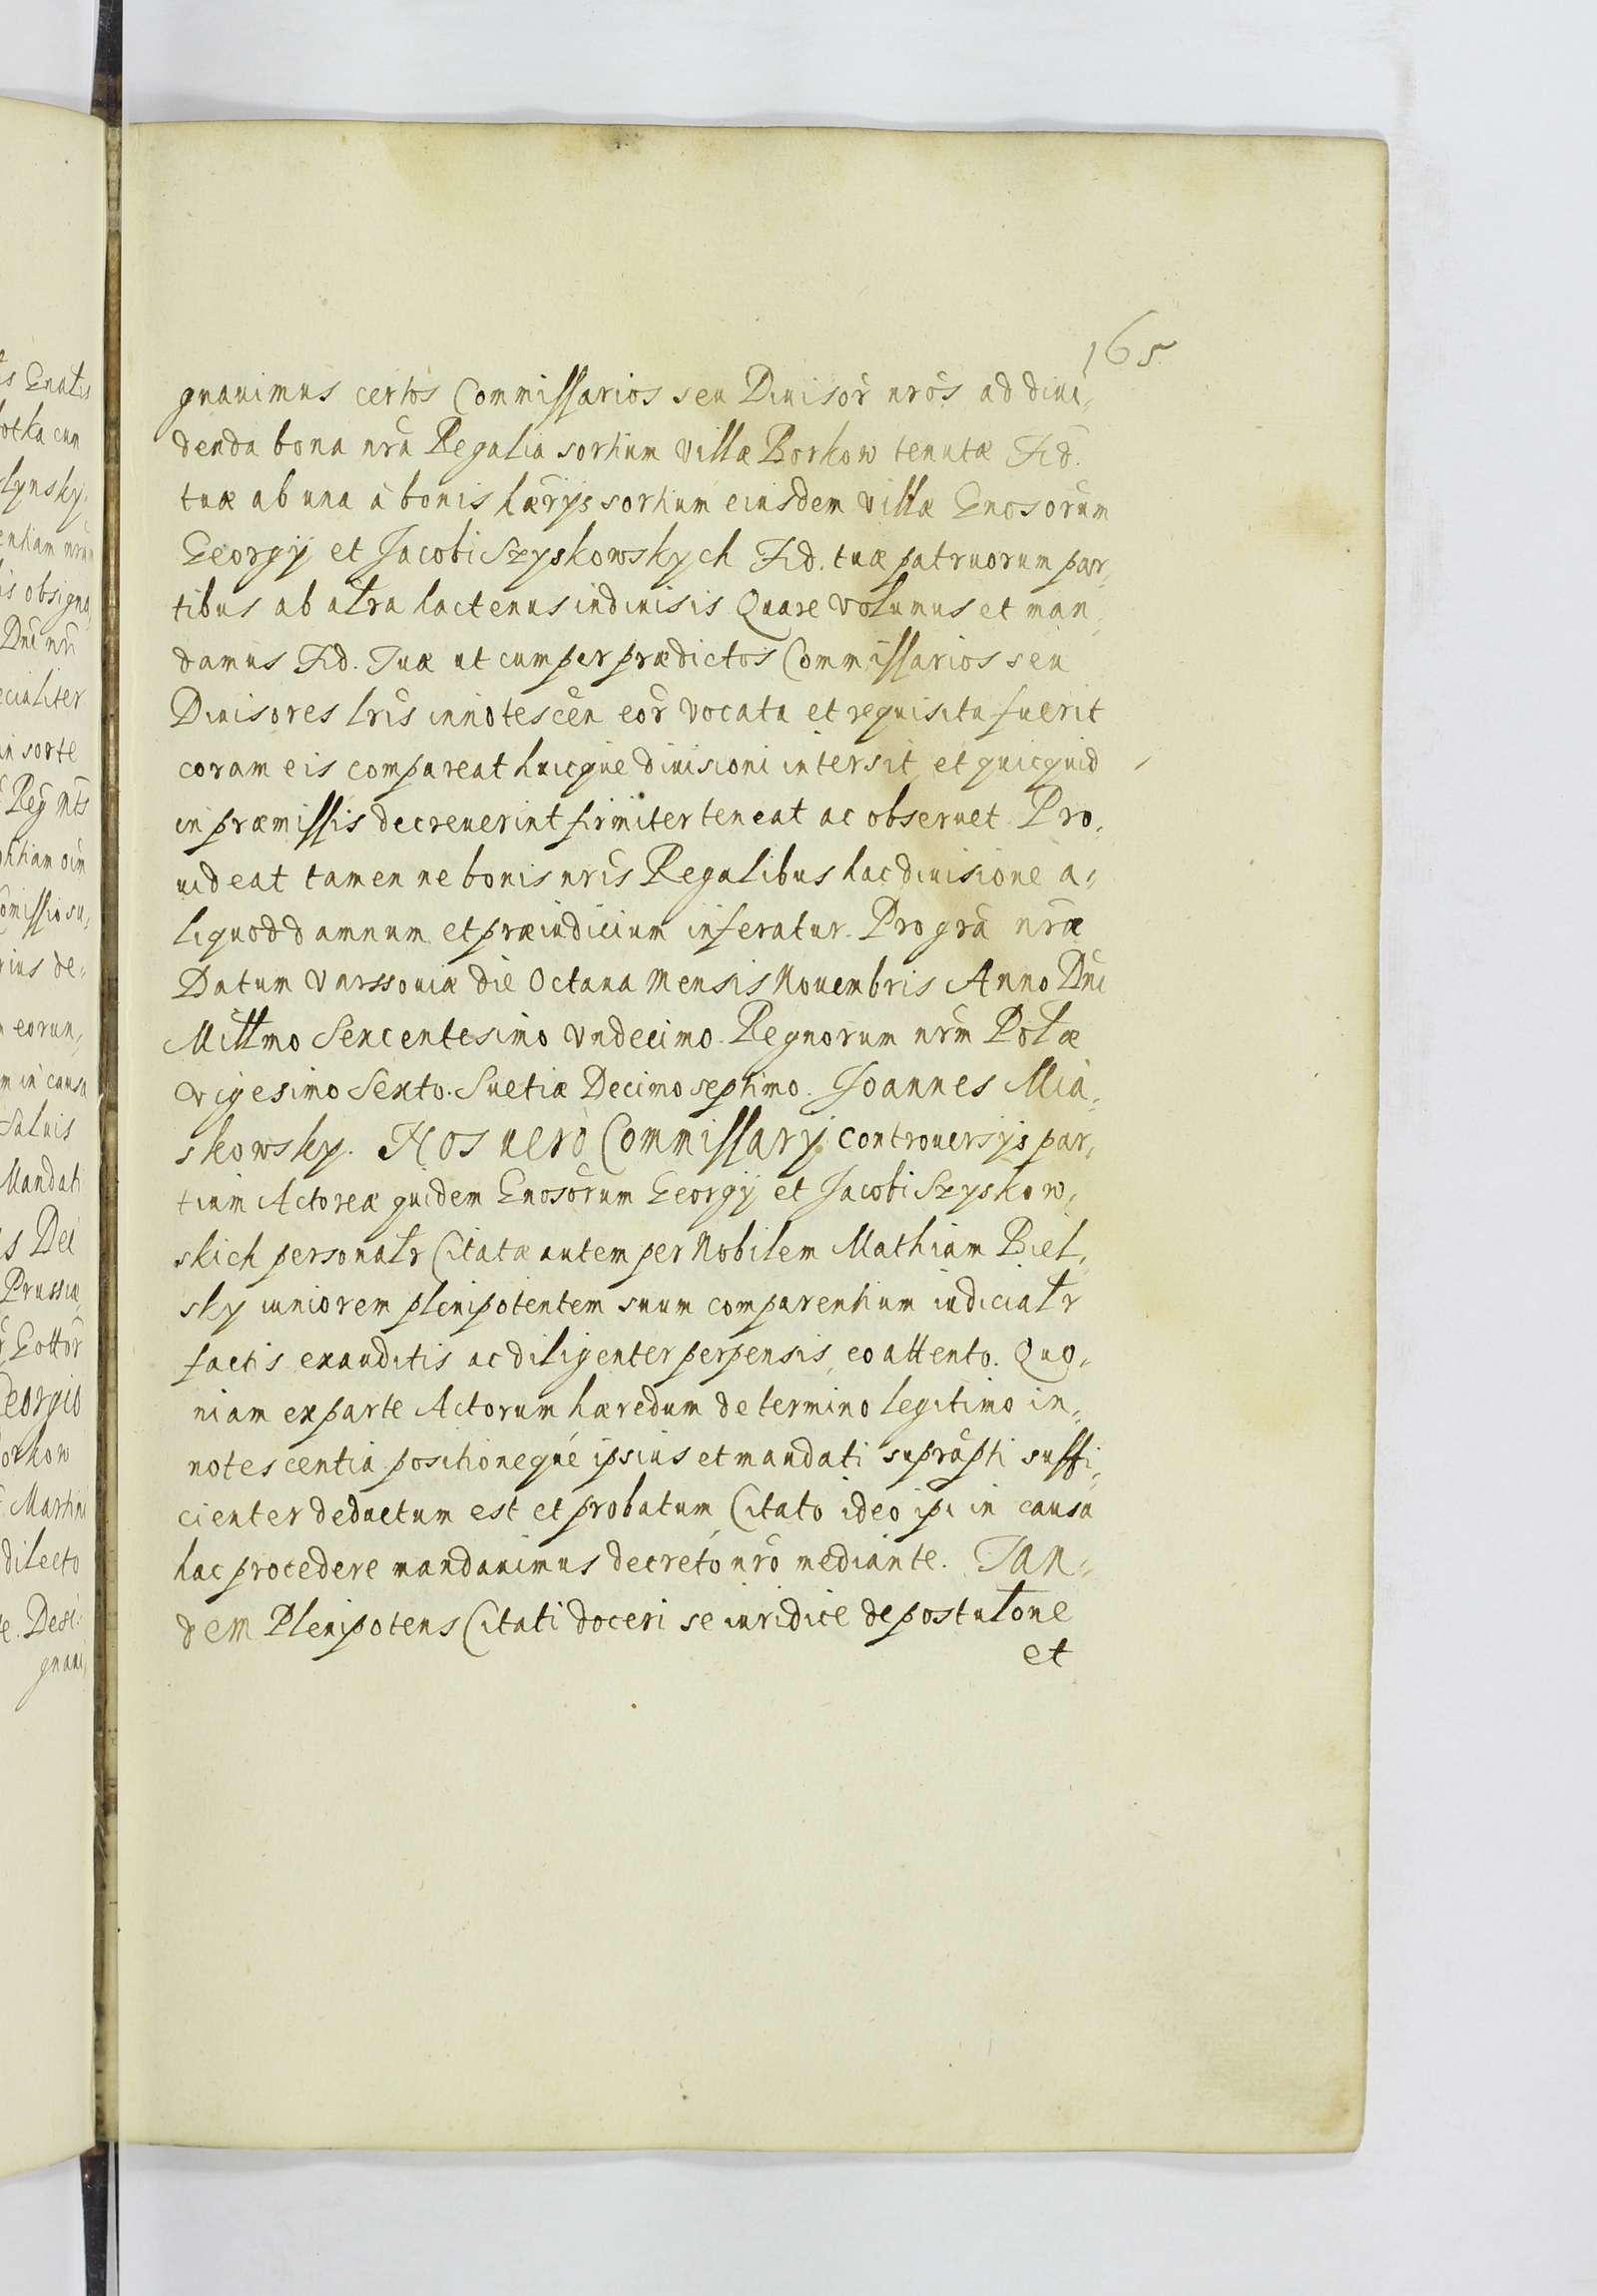 165.
gnauimus certos Commissarios seu Diuisor̃ nrõs ad diui,
denda bona nrã Regalia sortium Villæ Borkow tenutæ Fid.
tuæ ab una à bonis hærijs sortium eiusdem Villæ Gnosorum
Georgij et Jacobi Szyskowskych Fid. tuæ patruorum par,
tibus ab altra hactenus indiuisis Quare Volumus et man,
damus Fid. Tuæ ut cum per prædictos Commissarios seu
Diuisores lrĩs innotescen̄ eor̃ Vocata et requisita fuerit
coram eis compareat huicque diuisioni intersit, et quicquid
in præmissis decreuerint firmiter teneat ac obseruet. Pro,
uideat tamen ne bonis nrĩs Regalibus hac diuisione a,
liquod damnum et præiudicium inferatur. Pro grã nrã
Datum Varssouiæ die Octaua Mensis Nouembris Anno Dñi
Millmo Sexcentesimo Vndecimo. Regnorum nrm̃ Polæ
Vigesimo Sexto. Suetiæ Decimo septimo. Joannes Mia,
skowsky. Nos uero Commissarij controuersijs par,
tium Actoreæ quidem Gnosorum Georgij et Jacobi Szyskow,
skich personalr Citatæ autem per Nobilem Mathiam Biel,
sky iuniorem plenipotentem suum comparentium iudicialr
factis exauditis ac diligenter perpensis, eo attento. Quo,
niam ex parte Actorum hæredum de termino legitimo in,
notescentia positioneque ipsius et mandati suprãpti suffi,
cienter deductum est et probatum, Citato ideo ipi in causa
hac procedere mandauimus decreto nrõ mediante. Tan,
dem Plenipotens Citati doceri se iuridice de postulone
et
s Gnatis
otka cum
lynsky.
is obsigna,
Dñi nrĩ
ecialiter
in sorte
rius de,
eorun,
m in causa
Saluis
Mandati
s Dei
Prussiæ,
Georgio
orkow
Martini
dilecto
e. Desi,
gnaui,